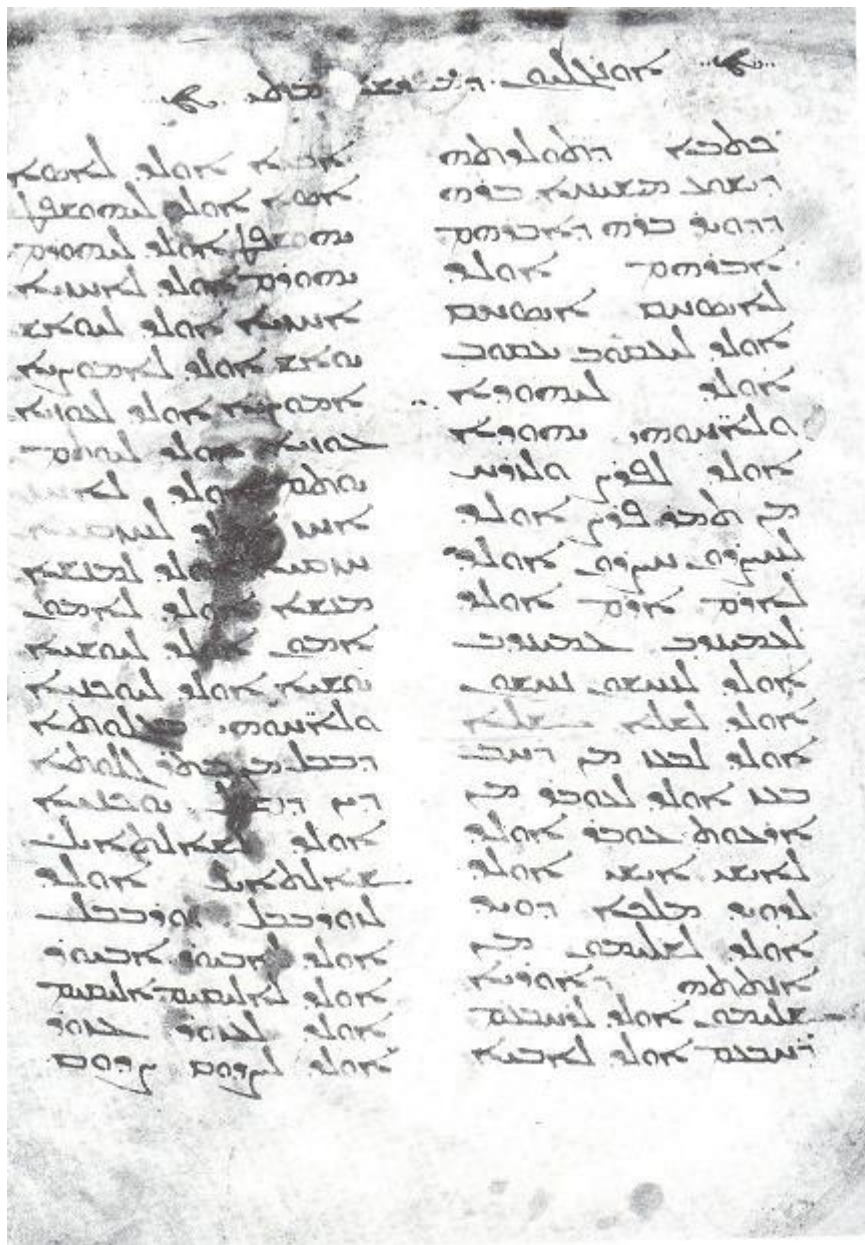 ܐܘܢܓܠܝܘܢ ܕܡܦܪܫܐ ܡܬܝ
ܟܬܒܐ ܕܬܘܠܕܬܗ
ܕܝܫܘܥ ܡܫܝܚܐ ܒܪܗ
ܕܕܘܝܕ ܒܪܗ ܕܐܒܪܗܡ
ܐܒܪܗܡ ܐܘܠܕ
ܠܐܝܣܚܩ ܐܝܣܚܩ
ܐܘܠܕ ܠܝܥܩܘܒ ܝܥܩܘܒ
ܐܘܠܕ ܠܝܗܘܕܐ
ܘܠܐܚ̈ܘܗܝ ܝܗܘܕܐ
ܐܘܠܕ ܠܦܪܨ ܘܠܙܪܚ
ܡܢ ܬܡܪ ܦܪܨ ܐܘܠܕ
ܠܚܨܪܘܢ ܚܨܪܘܢ ܐܘܠܕ
ܠܐܪܡ ܐܪܡ ܐܘܠܕ
ܠܥܡܝܢܕܒ ܥܡܝܢܕܒ
ܐܘܠܕ ܠܢܚܫܘܢ ܢܚܫܘܢ
ܐܘܠܕ ܠܫܠܐ ܫܠܐ
ܐܘܠܕ ܠܒܥܙ ܡܢ ܪܚܒ
ܒܥܙ ܐܘܠܕ ܠܥܘܒܕ ܡܢ
ܐܪܥܘܬ ܥܘܒܕ ܐܘܠܕ
ܠܐܝܫܝ ܐܝܫܝ ܐܘܠܕ
ܠܕܘܝܕ ܡܠܟܐ ܕܘܝܕ
ܐܘܠܕ ܠܫܠܝܡܘܢ ܡܢ
ܐܢܬܬܗ ܕܐܘܪܝܐ
ܫܠܝܡܘܢ ܐܘܠܕ ܠܪܚܒܥܡ
ܪܚܒܥܡ ܐܘܠܕ ܠܐܒܝܐ
ܐܒܝܐ ܐܘܠܕ ܠܐܣܐ
ܐܣܐ ܐܘܠܕ ܠܝܗܘܫܦܛ
ܝܗܘܫܦܛ ܐܘܠܕ ܠܝܗܘܪܡ
ܝܗܘܪܡ ܐܘܠܕ ܠܐܚܙܝܐ
ܐܚܙܝܐ ܐܘܠܕ ܠܝܘܐܫ
ܝܘܐܫ ܐܘܠܕ ܠܐܡܘܨܝܐ
ܐܡܘܨܝܐ ܐܘܠܕ ܠܥܘܙܝܐ
ܥܘܙܝܐ ܐܘܠܕ ܠܝܘܬܡ
ܝܘܬܡ ܐܘܠܕ ܠܐܚܙ
ܐܚܙ ܐܘܠܕ
ܐܘܠܕ ܠܡܢܫܐ
ܡܢܫܐ ܐܘܠܕ ܠܐܡܘܢ
ܐܡܘܢ ܐܘܠܕ ܠܝܘܫܝܐ
ܝܘܫܝܐ ܐܘܠܕ ܠܝܘܟܢܝܐ
ܘܠܐܚ̈ܘܗܝ ܒܓܠܘܬܐ
ܕܒܒܠ ܡܢ ܒܬܪ ܓܠܘܬܐ
ܕܝܢ ܕܒܒܠ ܝܘܟܢܝܐ
ܐܘܠܕ ܠܫܠܬܐܝܠ
ܫܠܬܐܝܠ ܐܘܠܕ
ܠܙܘܪܒܒܠ ܙܘܪܒܒܠ
ܐܘܠܕ ܠܐܒܝܘܪ ܐܒܝܘܪ
ܐܘܠܕ ܠܐܠܝܩܝܡ ܐܠܝܩܝܡ
ܐܘܠܕ ܠܥܙܘܪ ܥܙܘܪ
ܐܘܠܕ ܠܨܕܘܩ ܨܕܘܩ